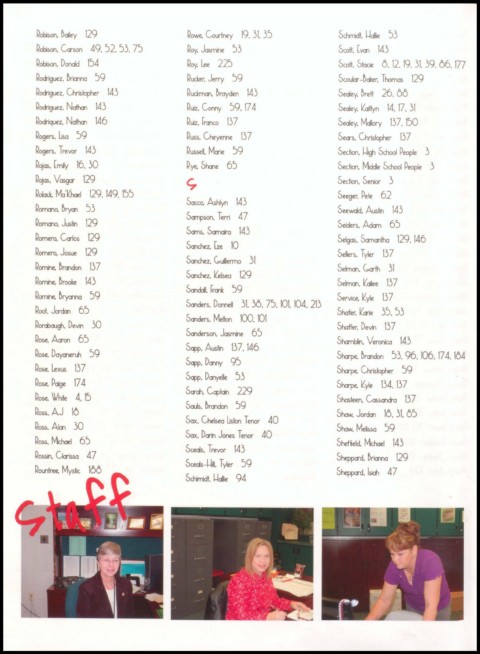 Robison, Bailey 129
Robison, Carson 49, 52, 53, 75
Robison, Donald 154
Rodriguez, Brianna 59
Rodriguez, Christopher 143
Rodriguez, Nathan 143
Rodriquez, Nathan 146
Rogers, Lisa 59
Rogers, Trevor 143
Rojas, Emily 16, 30
Rojas, Vasgar 129
Rolack, Ma'Khael 129, 149, 155
Romano, Bryan 53
Romano, Justin 129
Romens, Carlos 129
Romens, Josue 129
Romine, Brandon 137
Romine, Brooke 143
Romine, Bryanna 59
Root, Jordan 65
Rorabaugh, Devin 30
Rose, Aaron 65
Rose, Dayaneruh 59
Rose, Lexus 137
Rose, Paige 174
Rose, White 4, 15
Ross, A.J 18
Ross, Alan 30
Ross, Michael 65
Rossin, Clarissa 47
Rountree, Mystic 188
Rowe, Courtney 19, 31, 35
Roy, Jasmine 53
Roy, Lee 225
Rucker, Jerry 59
Ruckman, Brayden 143
Ruiz, Conny 59, 174
Ruiz, Franco 137
Russ, Cheyenne 137
Russell, Marie 59
Rye, Shane 65
S
Sacco, Ashlyn 143
Sampson, Terri 47
Sams, Samaira 143
Sanchez, Eze 10
Sanchez, Guillermo 31
Sanchez, Kelsea 129
Sandall, Frank 59
Sanders, Donnell 31, 38, 75, 101, 104, 213
Sanders, Melton 100, 101
Sanderson, Jasmine 65
Sapp, Austin 137, 146
Sapp, Danny 95
Sapp, Danyelle 53
Sarah, Captain 229
Sauls, Brandon 59
Sax, Chelsea Liston Tenor 40
Sax, Darin Jones Tenor 40
Sceals, Trevor 143
Sceals-Hill, Tyler 59
Schimidt, Hallie 94
Schmidt, Hallie 53
Scott, Evan 143
Scott, Stacie 8, 12, 19, 31, 39, 86, 177
Scoular-Baker, Thomas 129
Sealey, Brett 26, 88
Sealey, Kaitlyn 14, 17, 31
Sealey, Mallory 137, 150
Sears, Christopher 137
Section, High School People 3
Section, Middle School People 3
Section, Senior 3
Seeger, Pete 62
Seewald, Austin 143
Seiders, Adam 65
Selgas, Samantha 129, 146
Sellers, Tyler 137
Selman, Garth 31
Selman, Kailee 137
Service, Kyle 137
Shafer, Karie 35, 53
Shaffer, Devin 137
Shamblin, Veronica 143
Sharpe, Brandon 53, 96, 106, 174, 184
Sharpe, Christopher 59
Sharpe, Kyle 134, 137
Shasteen, Cassandra 137
Shaw, Jordan 18, 31, 85
Shaw, Melissa 59
Sheffield, Michael 143
Sheppard, Brianna 129
Sheppard, Isiah 47
Staff